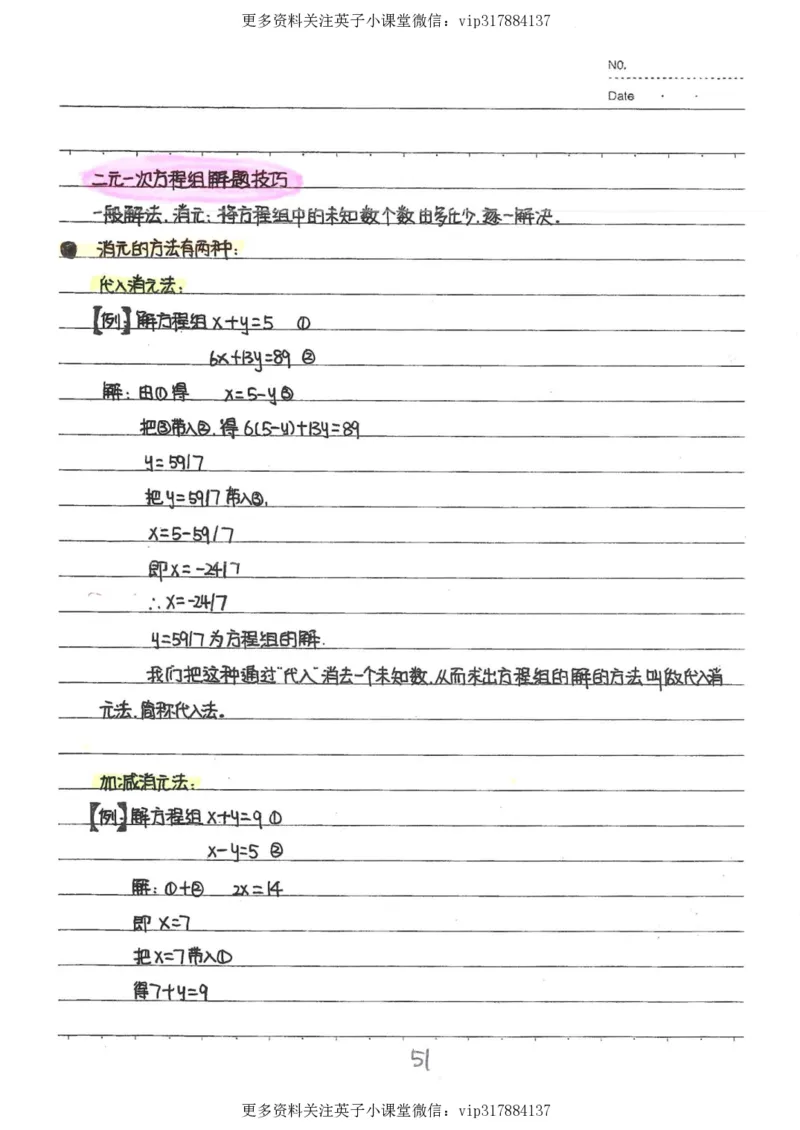 更多资料关注英子小课堂微信：vip317884137
NO.
Date
二元一次方程组解题技巧
一般解法,消元：将方程组中的未知数个数由多化少,逐一解决.
消元的方法有两种：
代入消元法：
【例:】解方程组 x+y=5 ①
6x+13y=89 ②
解：由①得 x=5-y③
把③带入②,得 6(5-y)+13y=89
y=59/7
把y=59/7 带入③,
x=5-59/7
即x=-24/7
∴x=-24/7
y=59/7 为方程组的解.
我们把这种通过"代入"消去一个未知数,从而求出方程组的解的方法叫做代入消
元法,简称代入法。
加减消元法：
【例:】解方程组 x+y=9 ①
x-y=5 ②
解：①+② 2x=14
即 x=7
把x=7带入①
得7+y=9
51
更多资料关注英子小课堂微信：vip317884137